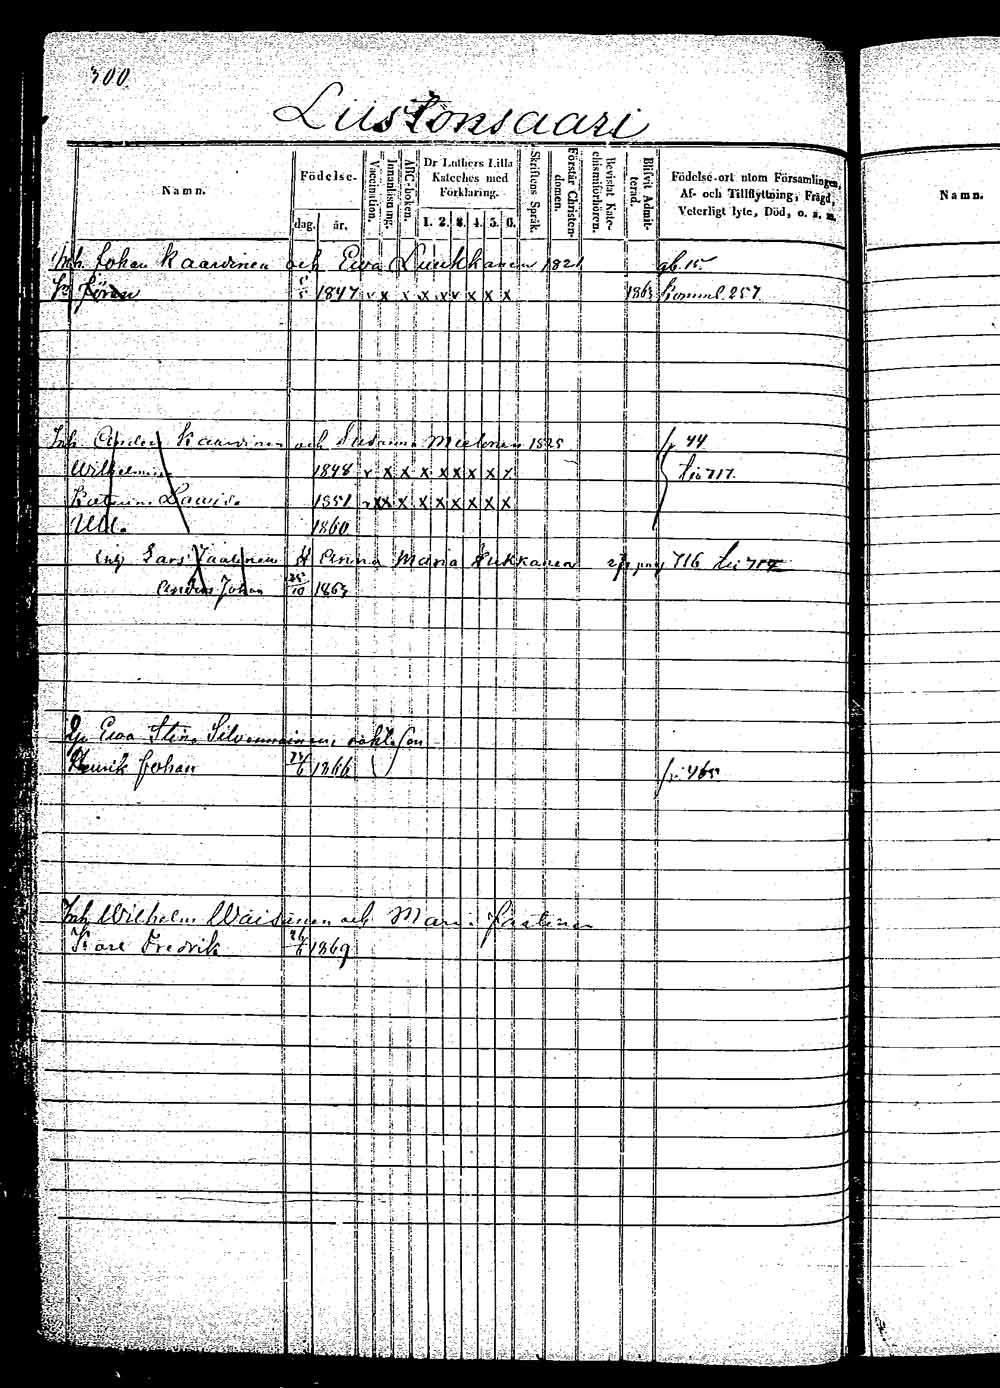 300.
Liistonsaari
Namn.
Födelse-
dag. år.
Vaccination.
Innanläsning.
ABC-boken.
Dr Luthers Lilla Kateches med Förklaring.
1. 2. 3. 4. 5. 6.
Skriftens Språk.
Förstår Christendomen.
Bevistat Katechismiförhören.
Blifvit Admitterad.
Födelse-ort utom Församlingen, Af- och Tillflyttning, Frägd, Veterligt lyte, Död, o. s. m.
Namn.
Inh. Johan Kaarvinen och Ewa Luukkanen 1821
1847 x x x x x x x x 1863 257
Inh. Anders Kaarvinen och Susanna Mielonen 1825 44
Wilhelmina 1848 x x x x x x x x 717.
Katarina Lowisa 1851 x x x x x x x x
Ulla 1860
Inh Lars Jaatinen Anna Maria Lukkanen 716
Anders Johan 25/10 1863
Ewa Stina Silvennoinen, oäkta son
Henrik Johan 1866 465
Inh Wilhelm Wäisänen och Maria Jaatinen
Karl Fredrik 1869